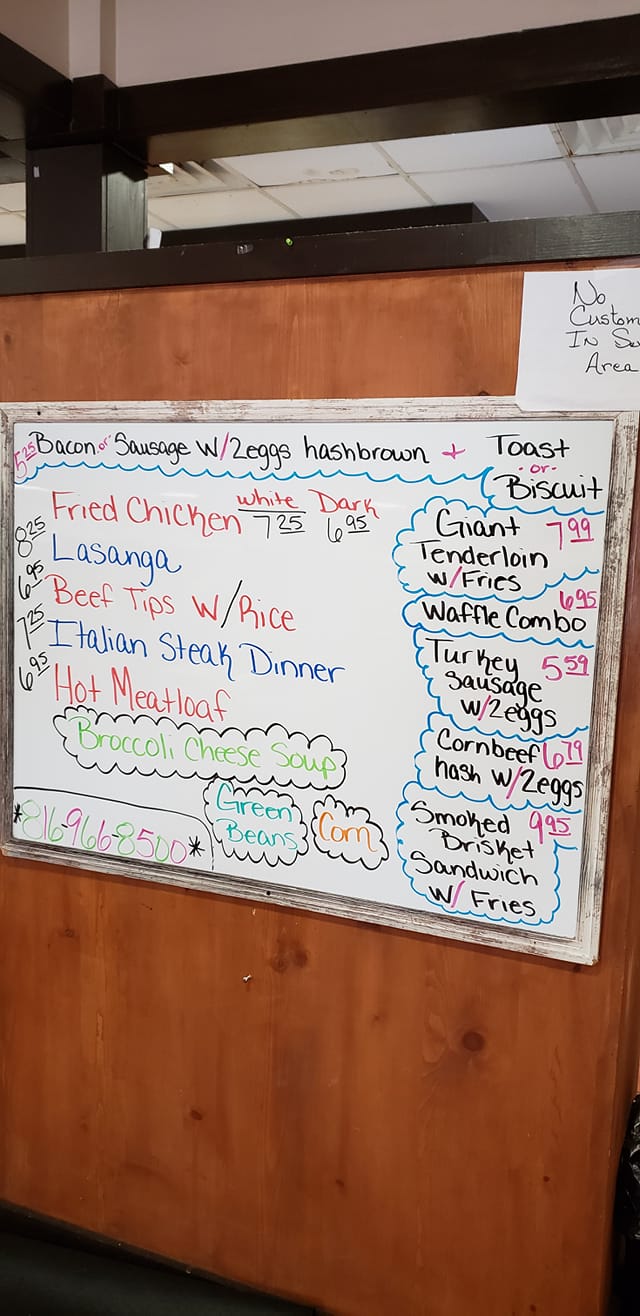 No
Custom
In Se
Area
5.25 Bacon or Sausage W/2eggs hashbrown + Toast
or
Biscuit
Fried Chicken White 7.25 Dark 6.95
8.25 Lasanga
6.95 Beef Tips W/Rice
7.25 Italian Steak Dinner
6.95 Hot Meatloaf
Broccoli Cheese Soup
Green
Beans
Corn
*816-966-8500*
Giant 7.99
Tenderloin
w/Fries
6.95
Waffle Combo
Turkey 5.59
Sausage
w/2eggs
Cornbeef 6.79
hash w/2eggs
Smoked 9.95
Brisket
Sandwich
w/ Fries